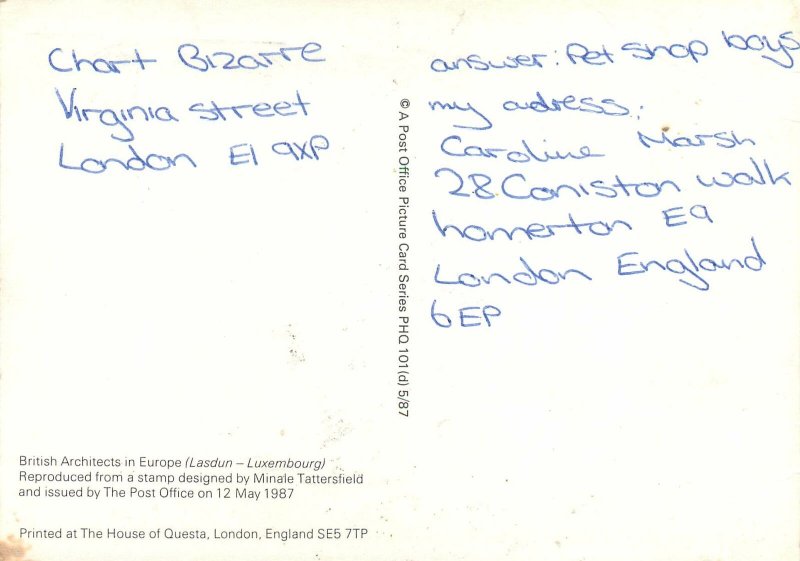 Chart Bizarre
Virginia street
London E1 9XP
answer: Pet Shop boys
my adress:
Caroline Marsh
28 Coniston walk
homerton E9
London England
6EP
© A Post Office Picture Card Series PHQ 101(d) 5/87
British Architects in Europe (Lasdun – Luxembourg)
Reproduced from a stamp designed by Minale Tattersfield
and issued by The Post Office on 12 May 1987
Printed at The House of Questa, London, England SE5 7TP